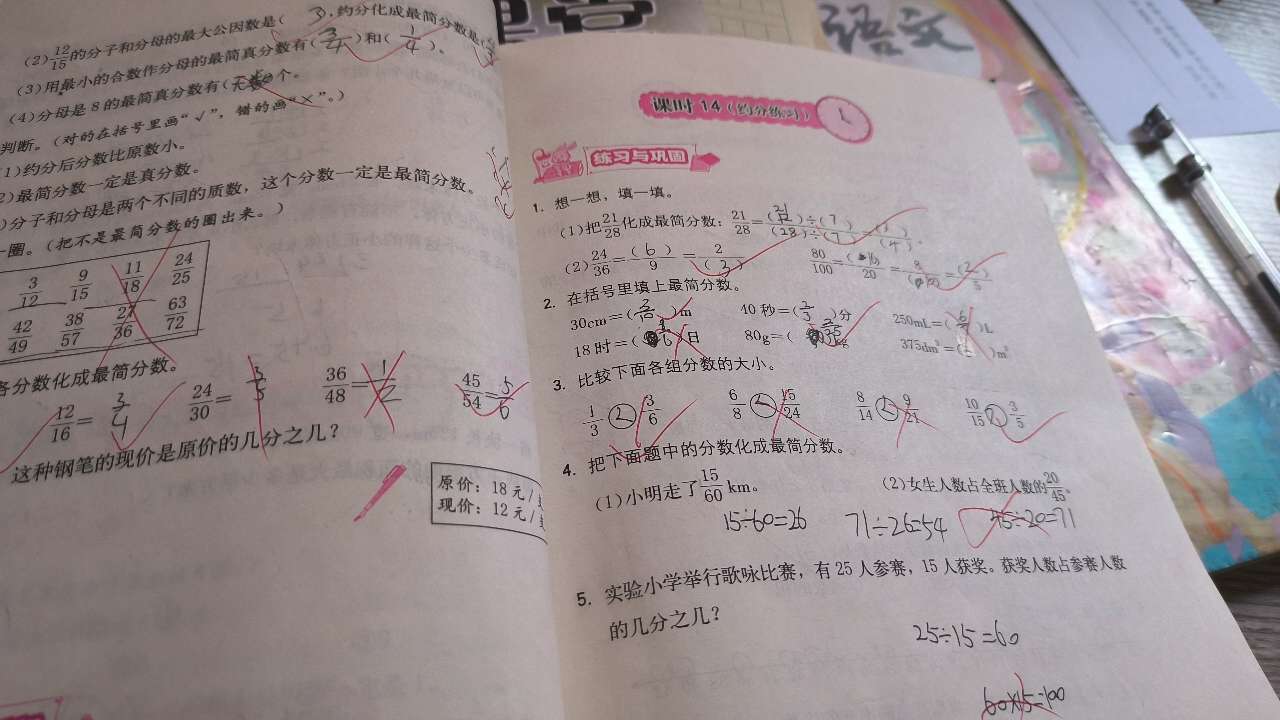 (2)12/15的分子和分母的最大公因数是( 3 ),约分化成最简分数是(
(3)用最小的合数作分母的最简真分数有( 3/4 )和( 1/4 )。
(4)分母是8的最简真分数有( )个。
判断。(对的在括号里画“√”,错的画“×”。)
1)约分后分数比原数小。
2)最简分数一定是真分数。
)分子和分母是两个不同的质数,这个分数一定是最简分数。
一圈。(把不是最简分数的圈出来。)
3/12 9/15 11/18 24/25
42/49 38/57 27/36 63/72
各分数化成最简分数。
12/16= 3/4 24/30= 3/5 36/48= 1/2 45/54= 5/6
这种钢笔的现价是原价的几分之几?
原价:18元/
现价:12元/
语文
课时14(约分练习)
练习与巩固
1. 想一想,填一填。
(1)把21/28化成最简分数:21/28=(21)÷(7)/(28)÷(7)=(3)/(4)。
(2)24/36=(6)/9=2/(3) 80/100=( )/20=8/( )=(2)/5
2. 在括号里填上最简分数。
30cm=( )m 40秒=(2/3)分 250mL=( )L
18时=( )日 80g=( )kg 375dm³=( )m³
3. 比较下面各组分数的大小。
1/3 3/6 6/8 15/24 8/14 9/21 10/15 3/5
4. 把下面题中的分数化成最简分数。
(1)小明走了15/60 km。 (2)女生人数占全班人数的20/45。
15÷60=26 71÷26=54 45÷20=71
5. 实验小学举行歌咏比赛,有25人参赛,15人获奖。获奖人数占参赛人数
的几分之几?
25÷15=60
60×15=100